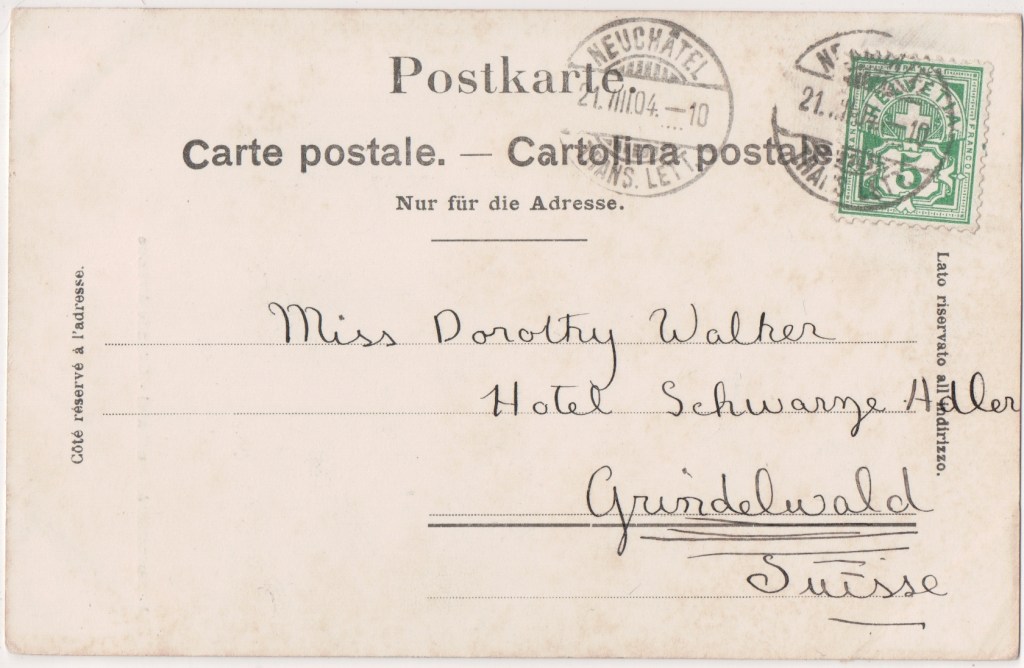 Postkarte.
Carte postale. — Cartolina postale
Nur für die Adresse.
NEUCHÂTEL
21.VIII.04.—10
NE
21.
10
FRANCO
5
Côté réservé à l'adresse.
Lato riservato all'indirizzo.
Miss Dorothy Walker
Hotel Schwarze Adler
Grindelwald
Suisse